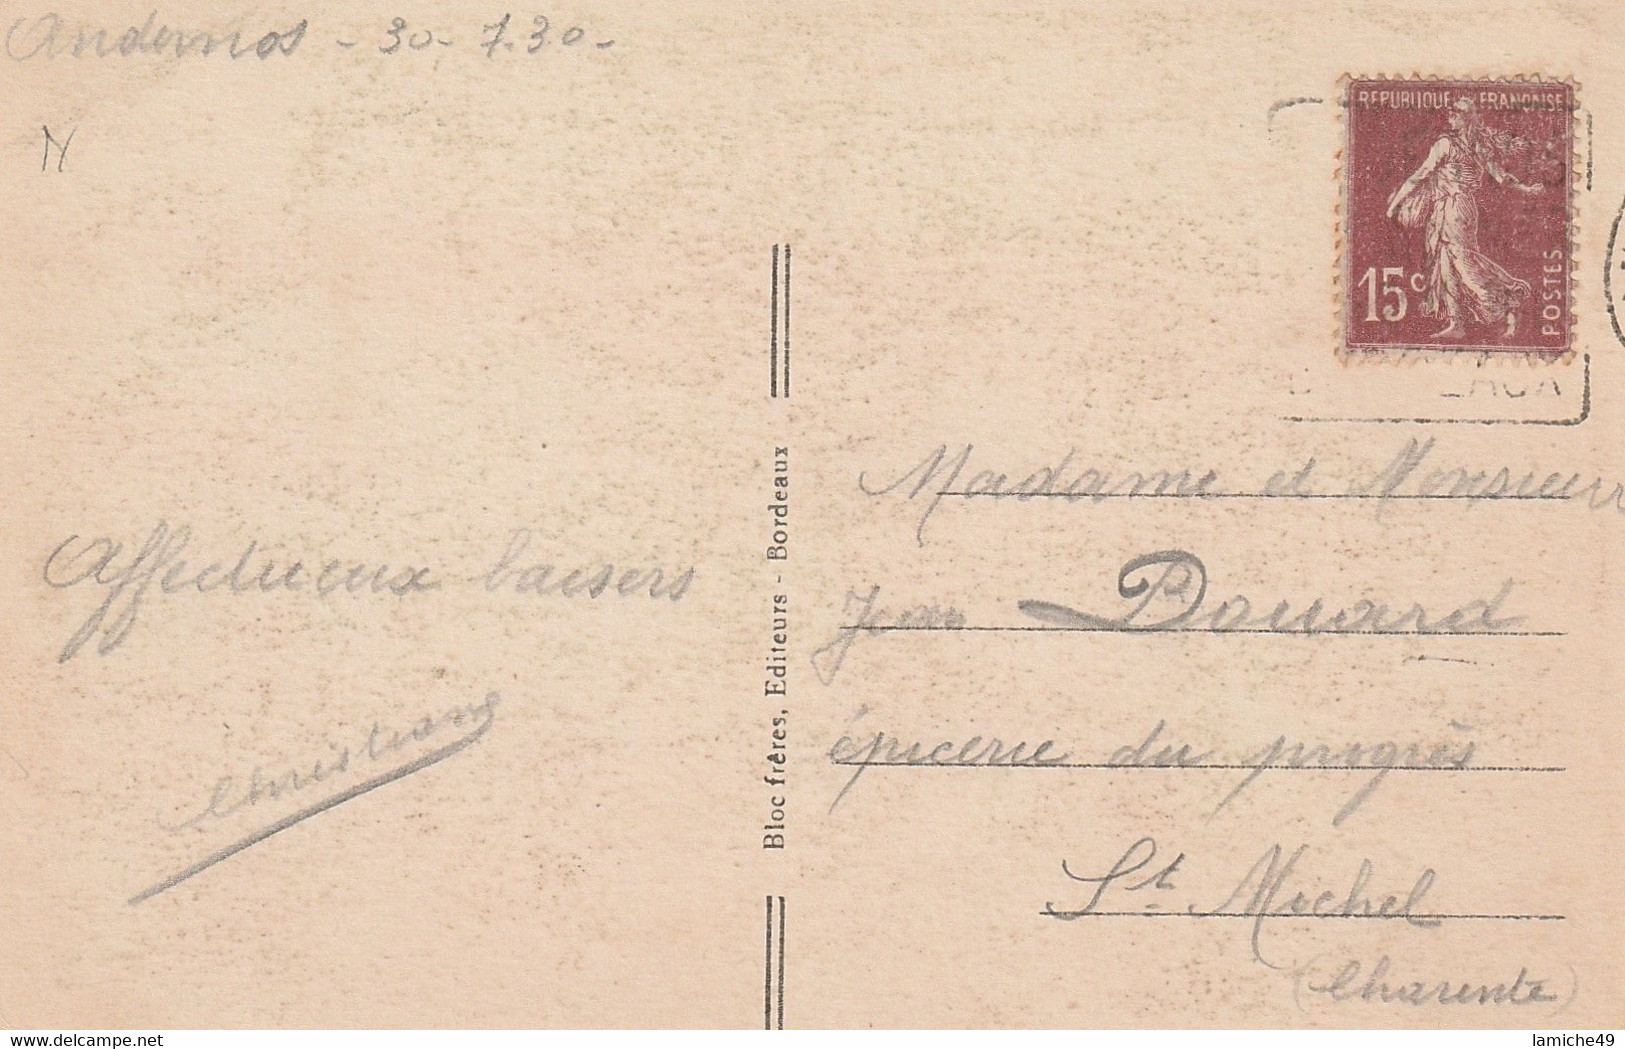 Andernos - 30 - 7.30 -
N
REPUBLIQUE FRANÇAISE
15c
POSTES
Affectueux baisers
Christiane
Bloc frères, Editeurs - Bordeaux
Madame et Monsieur
Jean Douard
épicerie du progrès
St. Michel
(Charente)
lamiche49
delcampe.net